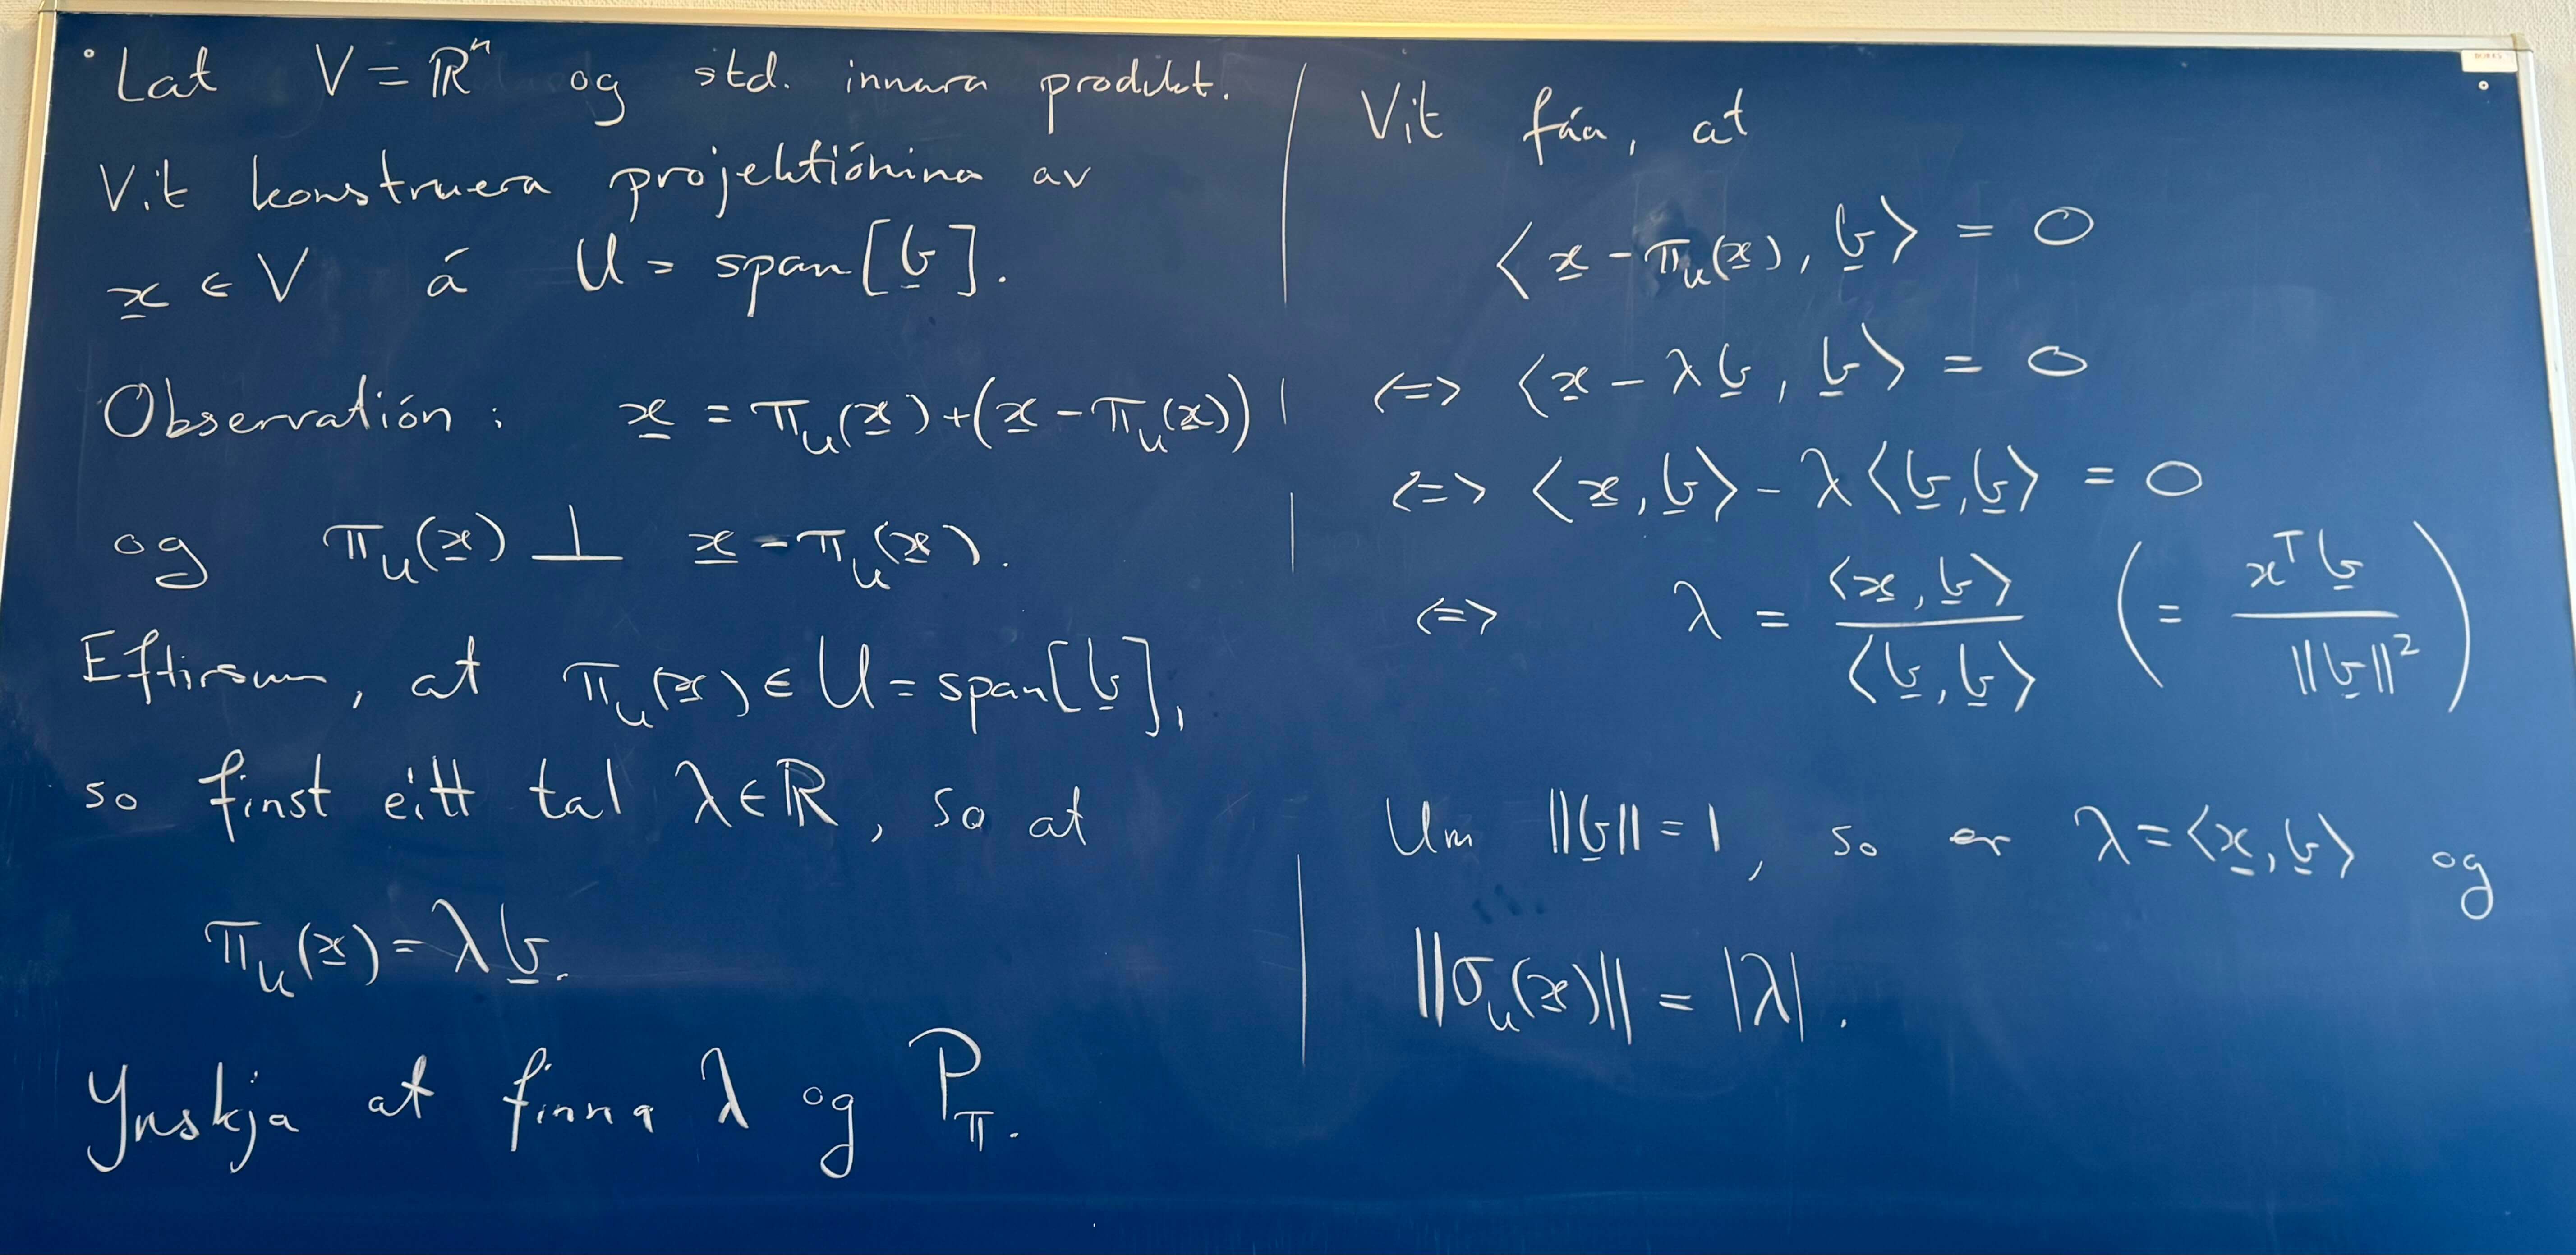 Lat V = ℝⁿ og std. innara produkt.
Vit konstruera projektiónina av
x̲ ∈ V á U = span[b̲].
Observatión : x̲ = π_U(x̲) + (x̲ - π_U(x̲))
og π_U(x̲) ⊥ x̲ - π_U(x̲).
Eftirsum, at π_U(x̲) ∈ U = span[b̲],
so finst eitt tal λ ∈ ℝ, so at
π_U(x̲) = λ b̲.
Ynskja at finna λ og P_π.
Vit fáa, at
⟨x̲ - π_U(x̲), b̲⟩ = 0
<=> ⟨x̲ - λ b̲, b̲⟩ = 0
<=> ⟨x̲, b̲⟩ - λ⟨b̲, b̲⟩ = 0
<=> λ = ⟨x̲, b̲⟩ / ⟨b̲, b̲⟩ ( = xᵀ b̲ / ||b̲||² )
Um ||b̲|| = 1, so er λ = ⟨x̲, b̲⟩ og
||σ_U(x̲)|| = |λ|.